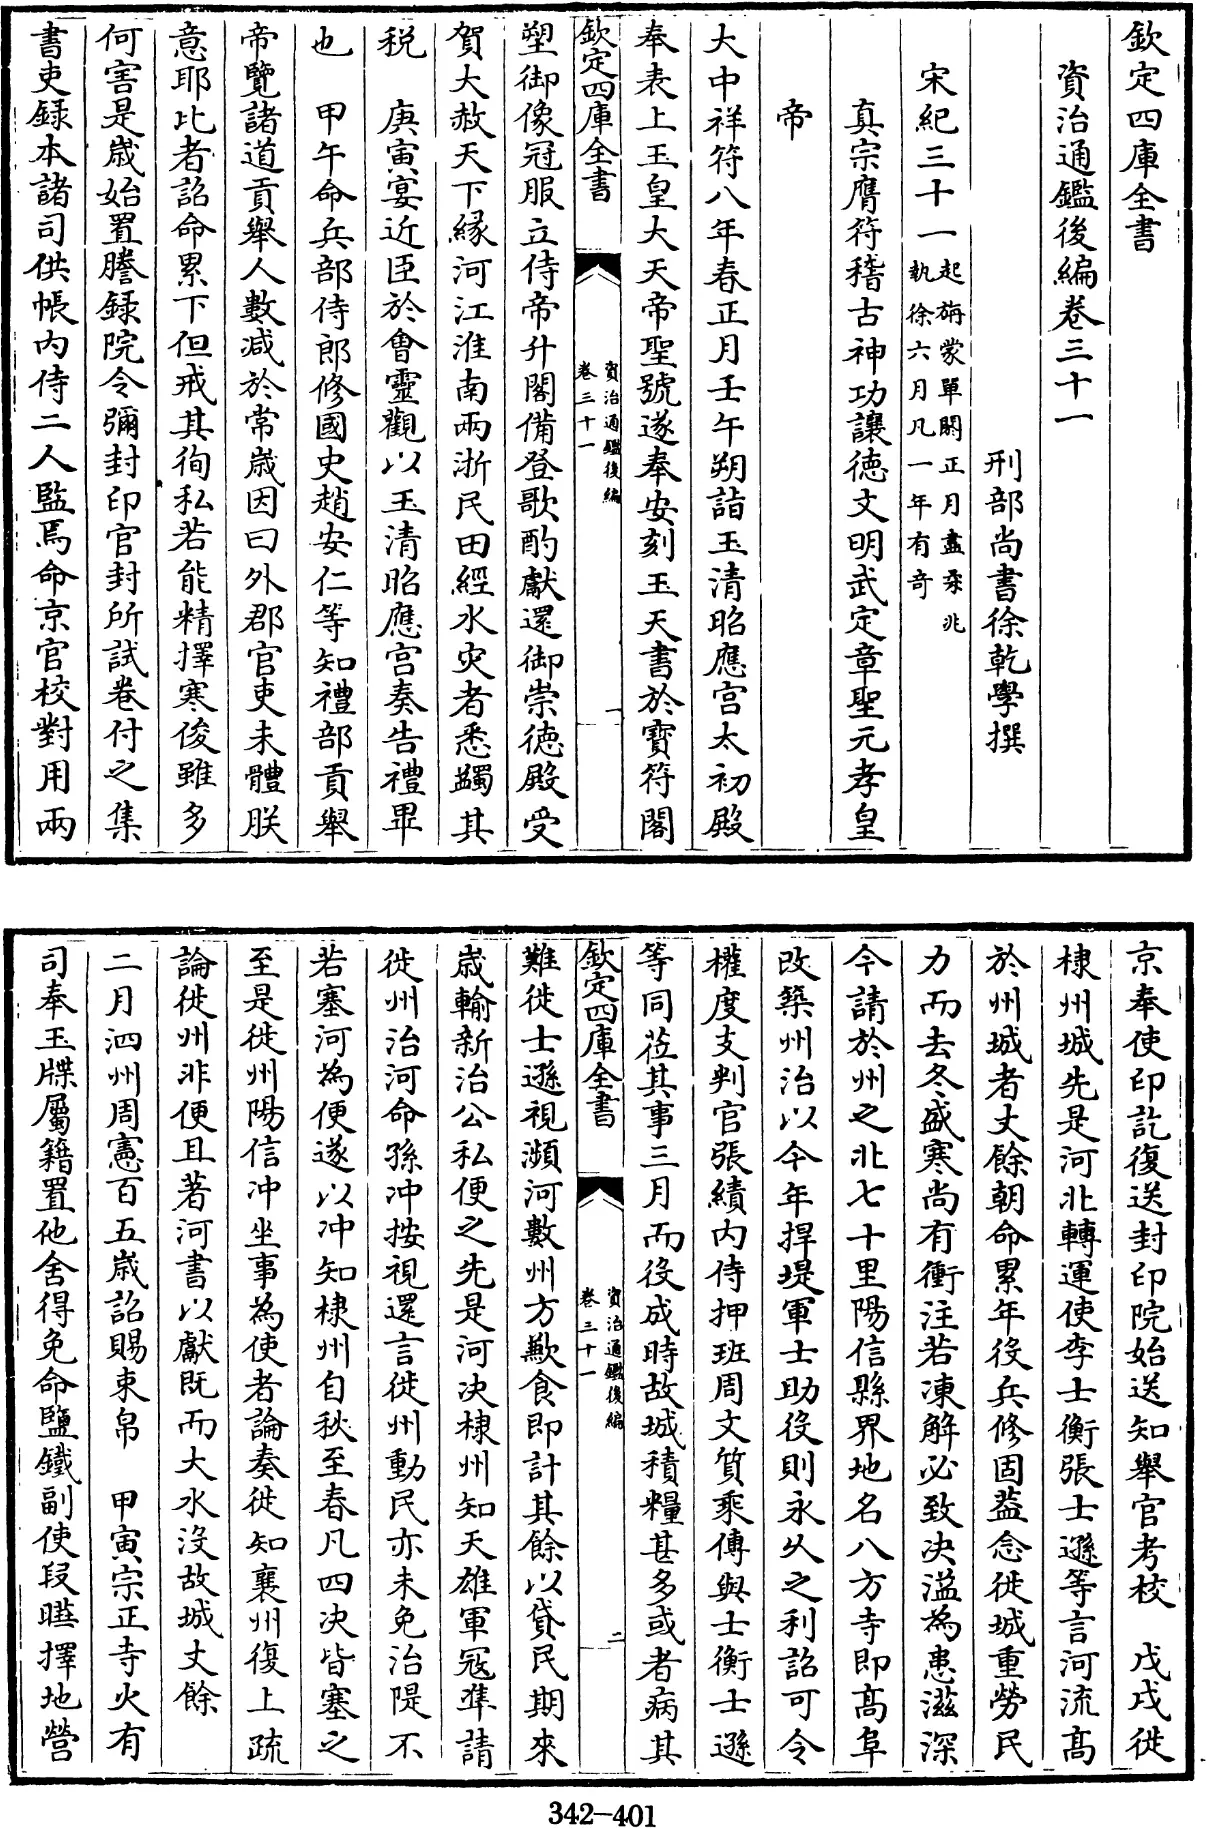 欽定四庫全書
資治通鑑後編卷三十一
刑部尚書徐乾學撰
宋紀三十一起旃蒙單閼正月盡柔兆
執徐六月凡一年有奇
真宗膺符稽古神功讓德文明武定章聖元孝皇
帝
大中祥符八年春正月壬午朔詣玉清昭應宮太初殿
奉表上玉皇大天帝聖號遂奉安刻玉天書於寶符閣
欽定四庫全書
資治通鑑後編
卷三十一
一
塑御像冠服立侍帝升閣備登歌酌獻還御崇德殿受
賀大赦天下緣河江淮南兩浙民田經水灾者悉蠲其
稅 庚寅宴近臣於會靈觀以玉清昭應宮奏告禮畢
也 甲午命兵部侍郎修國史趙安仁等知禮部貢舉
帝覽諸道貢舉人數減於常歲因曰外郡官吏未體朕
意耶比者詔命累下但戒其徇私若能精擇寒俊雖多
何害是歲始置謄錄院令彌封印官封所試卷付之集
書吏錄本諸司供帳內侍二人監焉命京官校對用兩
京奉使印訖復送封印院始送知舉官考校 戊戌徙
棣州城先是河北轉運使李士衡張士遜等言河流高
於州城者丈餘朝命累年役兵修固葢念徙城重勞民
力而去冬盛寒尚有衝注若凍解必致決溢為患滋深
今請於州之北七十里陽信縣界地名八方寺即高阜
改築州治以今年捍堤軍士助役則永久之利詔可令
權度支判官張績內侍押班周文質乘傳與士衡士遜
等同莅其事三月而役成時故城積糧甚多或者病其
欽定四庫全書
資治通鑑後編
卷三十一
二
難徙士遜視瀕河數州方歉食即計其餘以貸民期來
歲輸新治公私便之先是河決棣州知天雄軍冦準請
徙州治河命孫冲按視還言徙州動民亦未免治隄不
若塞河為便遂以冲知棣州自秋至春凡四決皆塞之
至是徙州陽信冲坐事為使者論奏徙知襄州復上疏
論徙州非便且著河書以獻既而大水沒故城丈餘
二月泗州周憲百五歲詔賜束帛 甲寅宗正寺火有
司奉玉牒屬籍置他舍得免命鹽鐵副使段曄擇地營
342-401